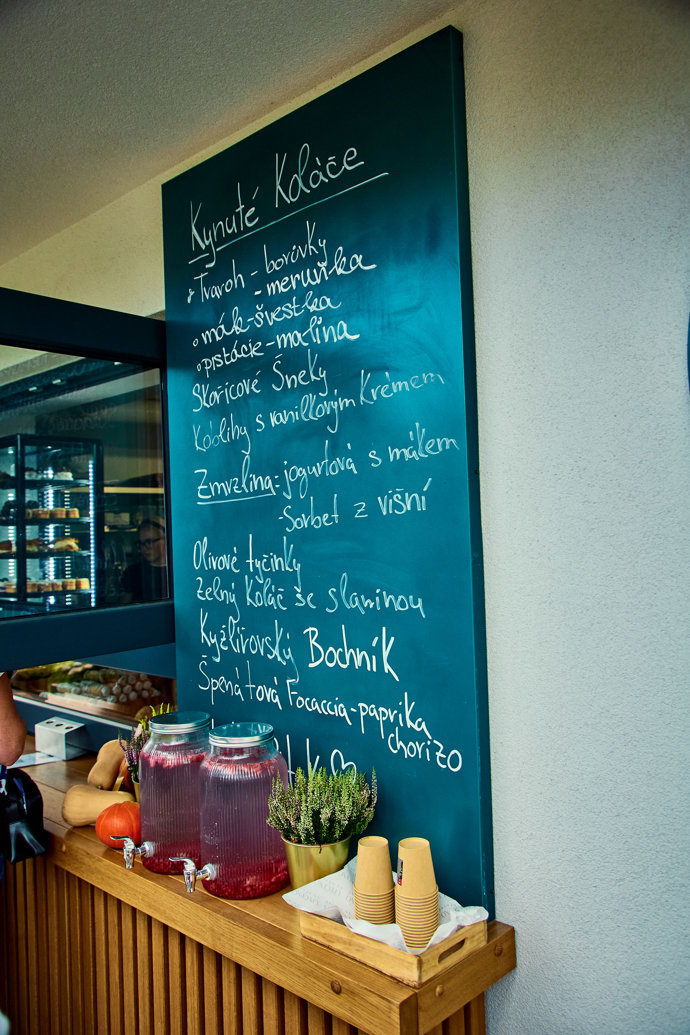 Kynuté Koláče
Tvaroh - borůvky
- meruňka
o mák-švestka
o pistácie - malina
Skořicové Šneky
Koblihy s vanilkovým Krémem
Zmrzlina: jogurtová s mákem
- Sorbet z višní
Olivové tyčinky
Zelný Koláč se slaninou
Kyžlířovský Bochník
Špenátová Focaccia - paprika
chorizo